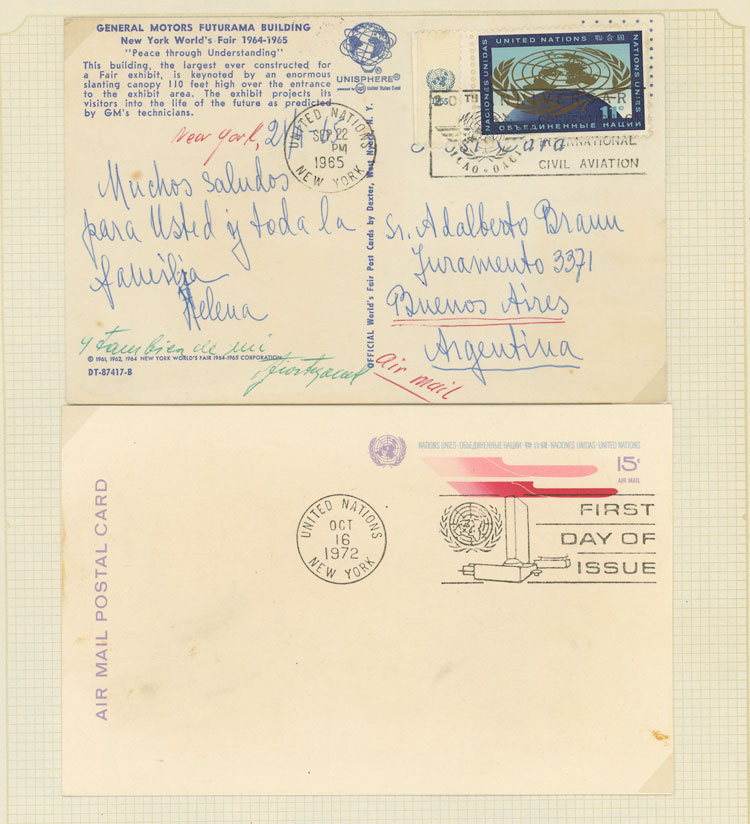 GENERAL MOTORS FUTURAMA BUILDING
New York World's Fair 1964-1965
"Peace through Understanding"
This building, the largest ever constructed for
a Fair exhibit, is keynoted by an enormous
slanting canopy 110 feet high over the entrance
to the exhibit area. The exhibit projects its
visitors into the life of the future as predicted
by GM's technicians.
UNISPHERE®
presented by United States Steel
NACIONES UNIDAS
UNITED NATIONS
NATIONS UNIES
ОБЪЕДИНЕННЫЕ НАЦИИ
11c
UNITED NATIONS
SEP 22
PM
1965
NEW YORK
ICAO · OACI
CIVIL AVIATION
New York, 21
Muchos saludos
para Usted y toda la
familia
Helena
y tambien de mi
© 1961, 1962, 1964 NEW YORK WORLD'S FAIR 1964-1965 CORPORATION
DT-87417-B
OFFICIAL World's Fair Post Cards by Dexter, West Nyack, N. Y.
Sr. Adalberto Braun
Juramento 3371
Buenos Aires
Argentina
Air mail
AIR MAIL POSTAL CARD
NATIONS UNIES · ОБЪЕДИНЕННЫЕ НАЦИИ · 聯合國 · NACIONES UNIDAS · UNITED NATIONS
15c
AIR MAIL
UNITED NATIONS
OCT
16
1972
NEW YORK
FIRST
DAY OF
ISSUE